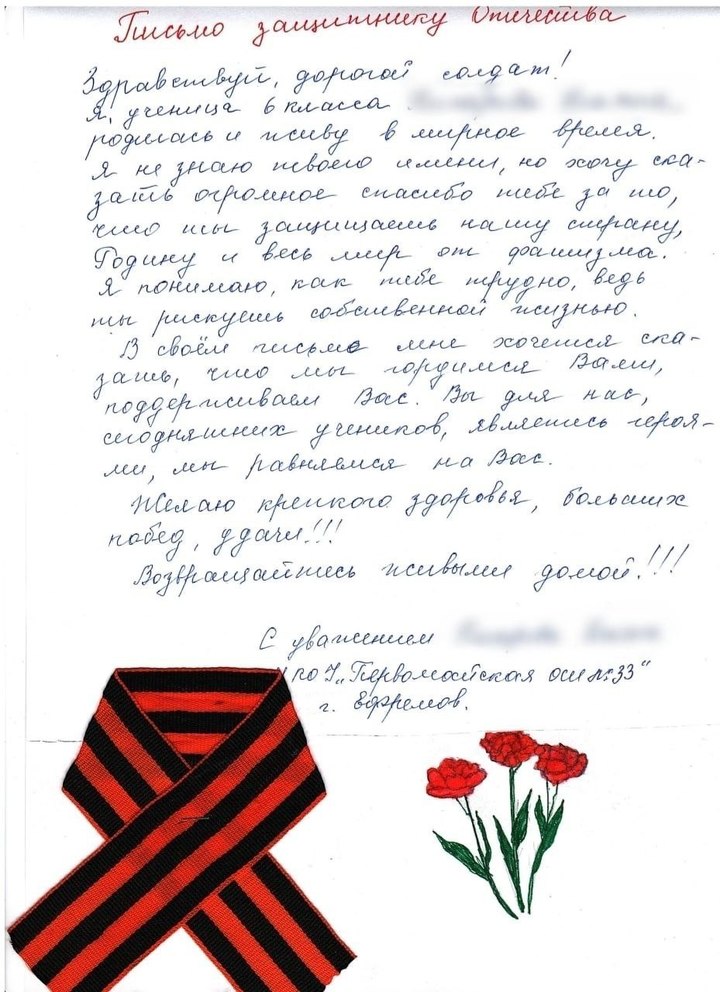 Письмо защитнику Отечества
Здравствуй, дорогой солдат!
Я, ученица 6 класса
родилась и живу в мирное время.
Я не знаю твоего имени, но хочу ска-
зать огромное спасибо тебе за то,
что ты защищаешь нашу страну,
Родину и весь мир от фашизма.
Я понимаю, как тебе трудно, ведь
ты рискуешь собственной жизнью.
В своём письме мне хочется ска-
зать, что мы гордимся Вами,
поддерживаем Вас. Вы для нас,
сегодняшних учеников, являетесь героя-
ми, мы равняемся на Вас.
Желаю крепкого здоровья, больших
побед, удачи!!!
Возвращайтесь живыми домой!!!
С уважением
"Первомайская осш №33"
г. Ефремов.